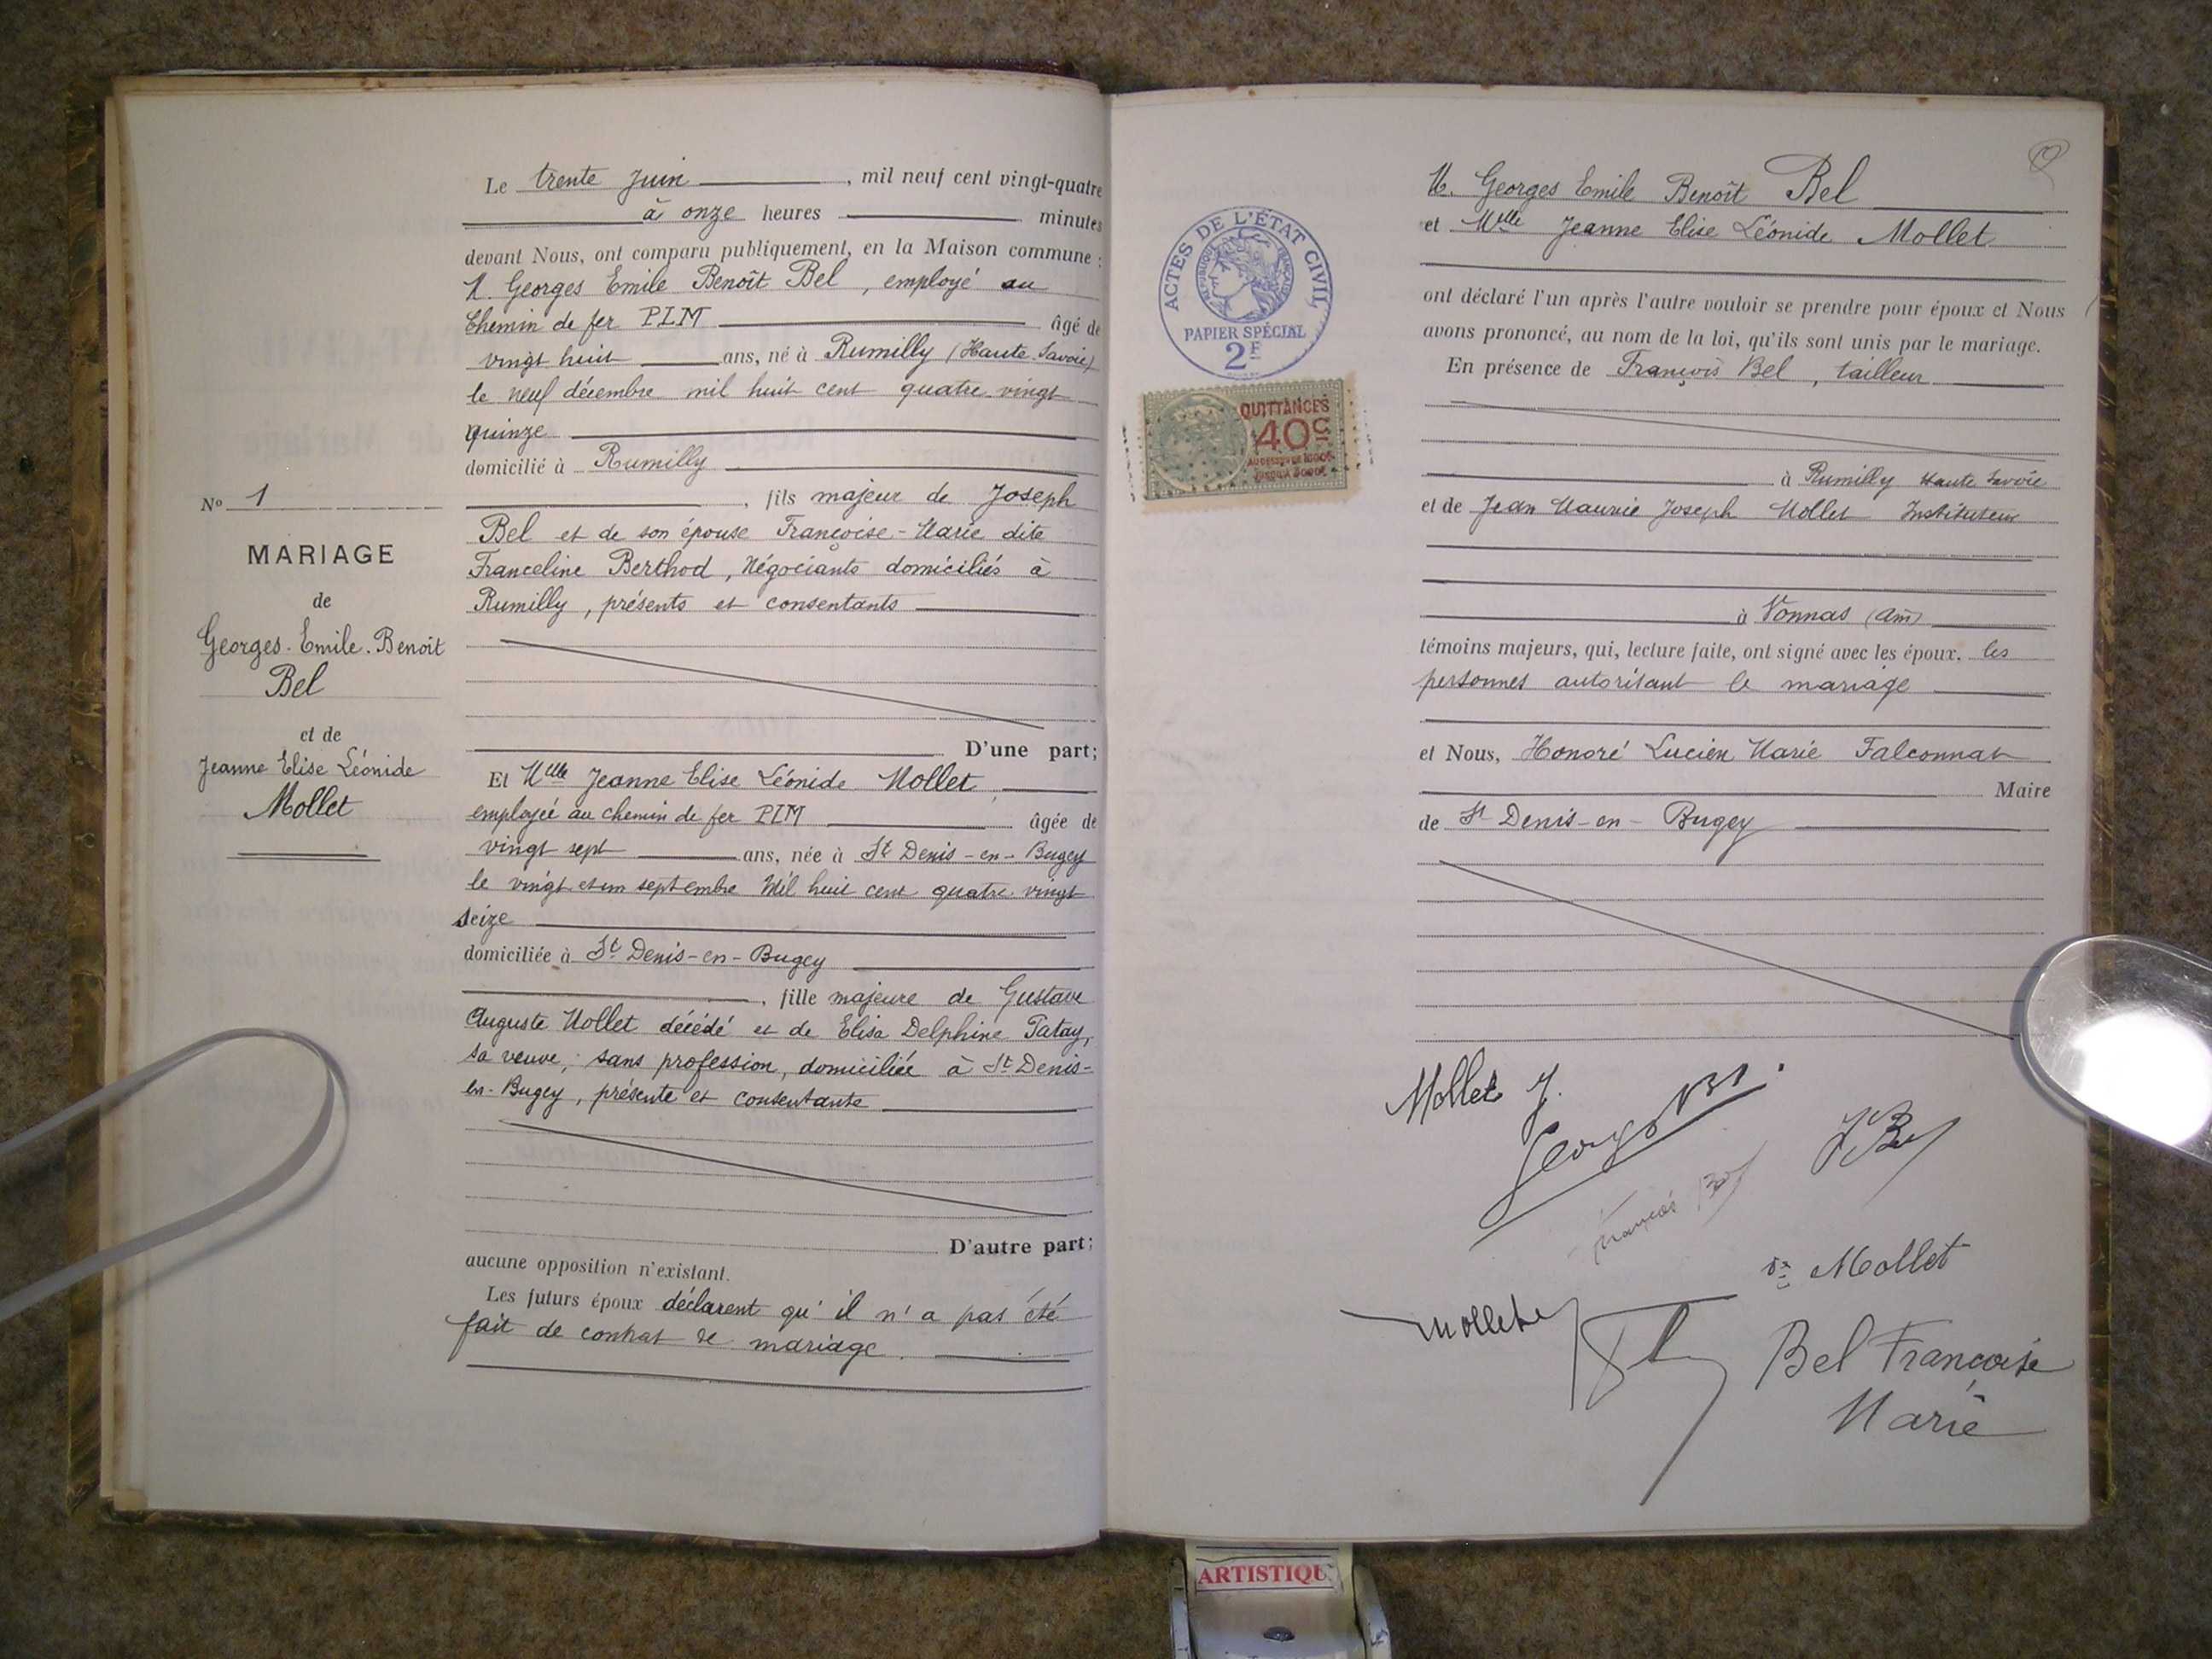 Le trente Juin, mil neuf cent vingt-quatre
à onze heures minutes
devant Nous, ont comparu publiquement, en la Maison commune :
M. Georges Emile Benoît Bel, employé au
Chemin de fer PLM âgé de
vingt huit ans, né à Rumilly (Haute-Savoie)
le neuf décembre mil huit cent quatre vingt
quinze
domicilié à Rumilly
, fils majeur de Joseph
Bel et de son épouse Françoise-Marie dite
Franceline Berthod, Négociants domiciliés à
Rumilly, présents et consentants
D'une part;
Et Mlle Jeanne Elise Léonide Mollet
employée au chemin de fer PLM âgée de
vingt sept ans, née à St Denis-en-Bugey
le vingt et un septembre Mil huit cent quatre vingt
seize
domiciliée à St Denis-en-Bugey
, fille majeure de Gustave
Auguste Mollet décédé et de Elisa Delphine Tatay,
sa veuve, sans profession, domiciliée à St Denis-
en-Bugey, présente et consentante
D'autre part;
aucune opposition n'existant.
Les futurs époux déclarent qu'il n'a pas été
fait de contrat de mariage.
No 1
MARIAGE
de
Georges-Emile-Benoît
Bel
et de
Jeanne Elise Léonide
Mollet
ACTES DE L'ÉTAT CIVIL
RÉPUBLIQUE FRANÇAISE
PAPIER SPÉCIAL
2F
QUITTANCES
40c
M. Georges Emile Benoît Bel
et Mlle Jeanne Elise Léonide Mollet
ont déclaré l'un après l'autre vouloir se prendre pour époux et Nous
avons prononcé, au nom de la loi, qu'ils sont unis par le mariage.
En présence de François Bel, tailleur
à Rumilly Haute Savoie
et de Jean Maurice Joseph Mollet Instituteur
à Vonnas (Ain)
témoins majeurs, qui, lecture faite, ont signé avec les époux, les
personnes autorisant le mariage
et Nous, Honoré Lucien Marie Falconnat
Maire
de St Denis-en-Bugey
Mollet J.
Georges Bel
J Bel
François Bel
Vve Mollet
Mollet
Bel Françoise
Marie
ARTISTIQU